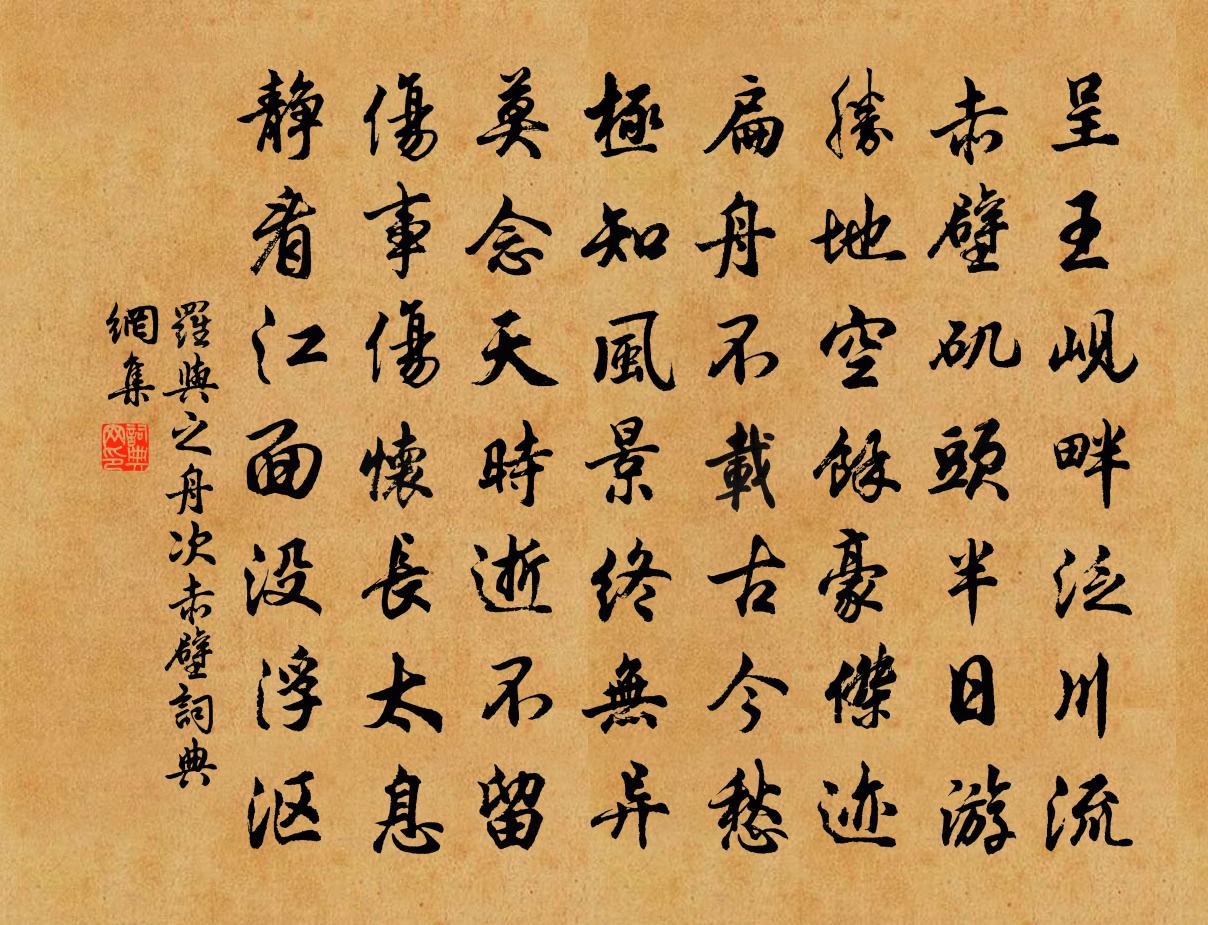 呈王峴畔泛川流
赤壁矶頭半日游
勝地空餘豪傑迹
扁舟不載古今愁
極知風景終無异
莫念天時逝不留
傷事傷懷長太息
靜看江面没浮沤
羅與之舟次赤壁詞典
網集
詞典網印